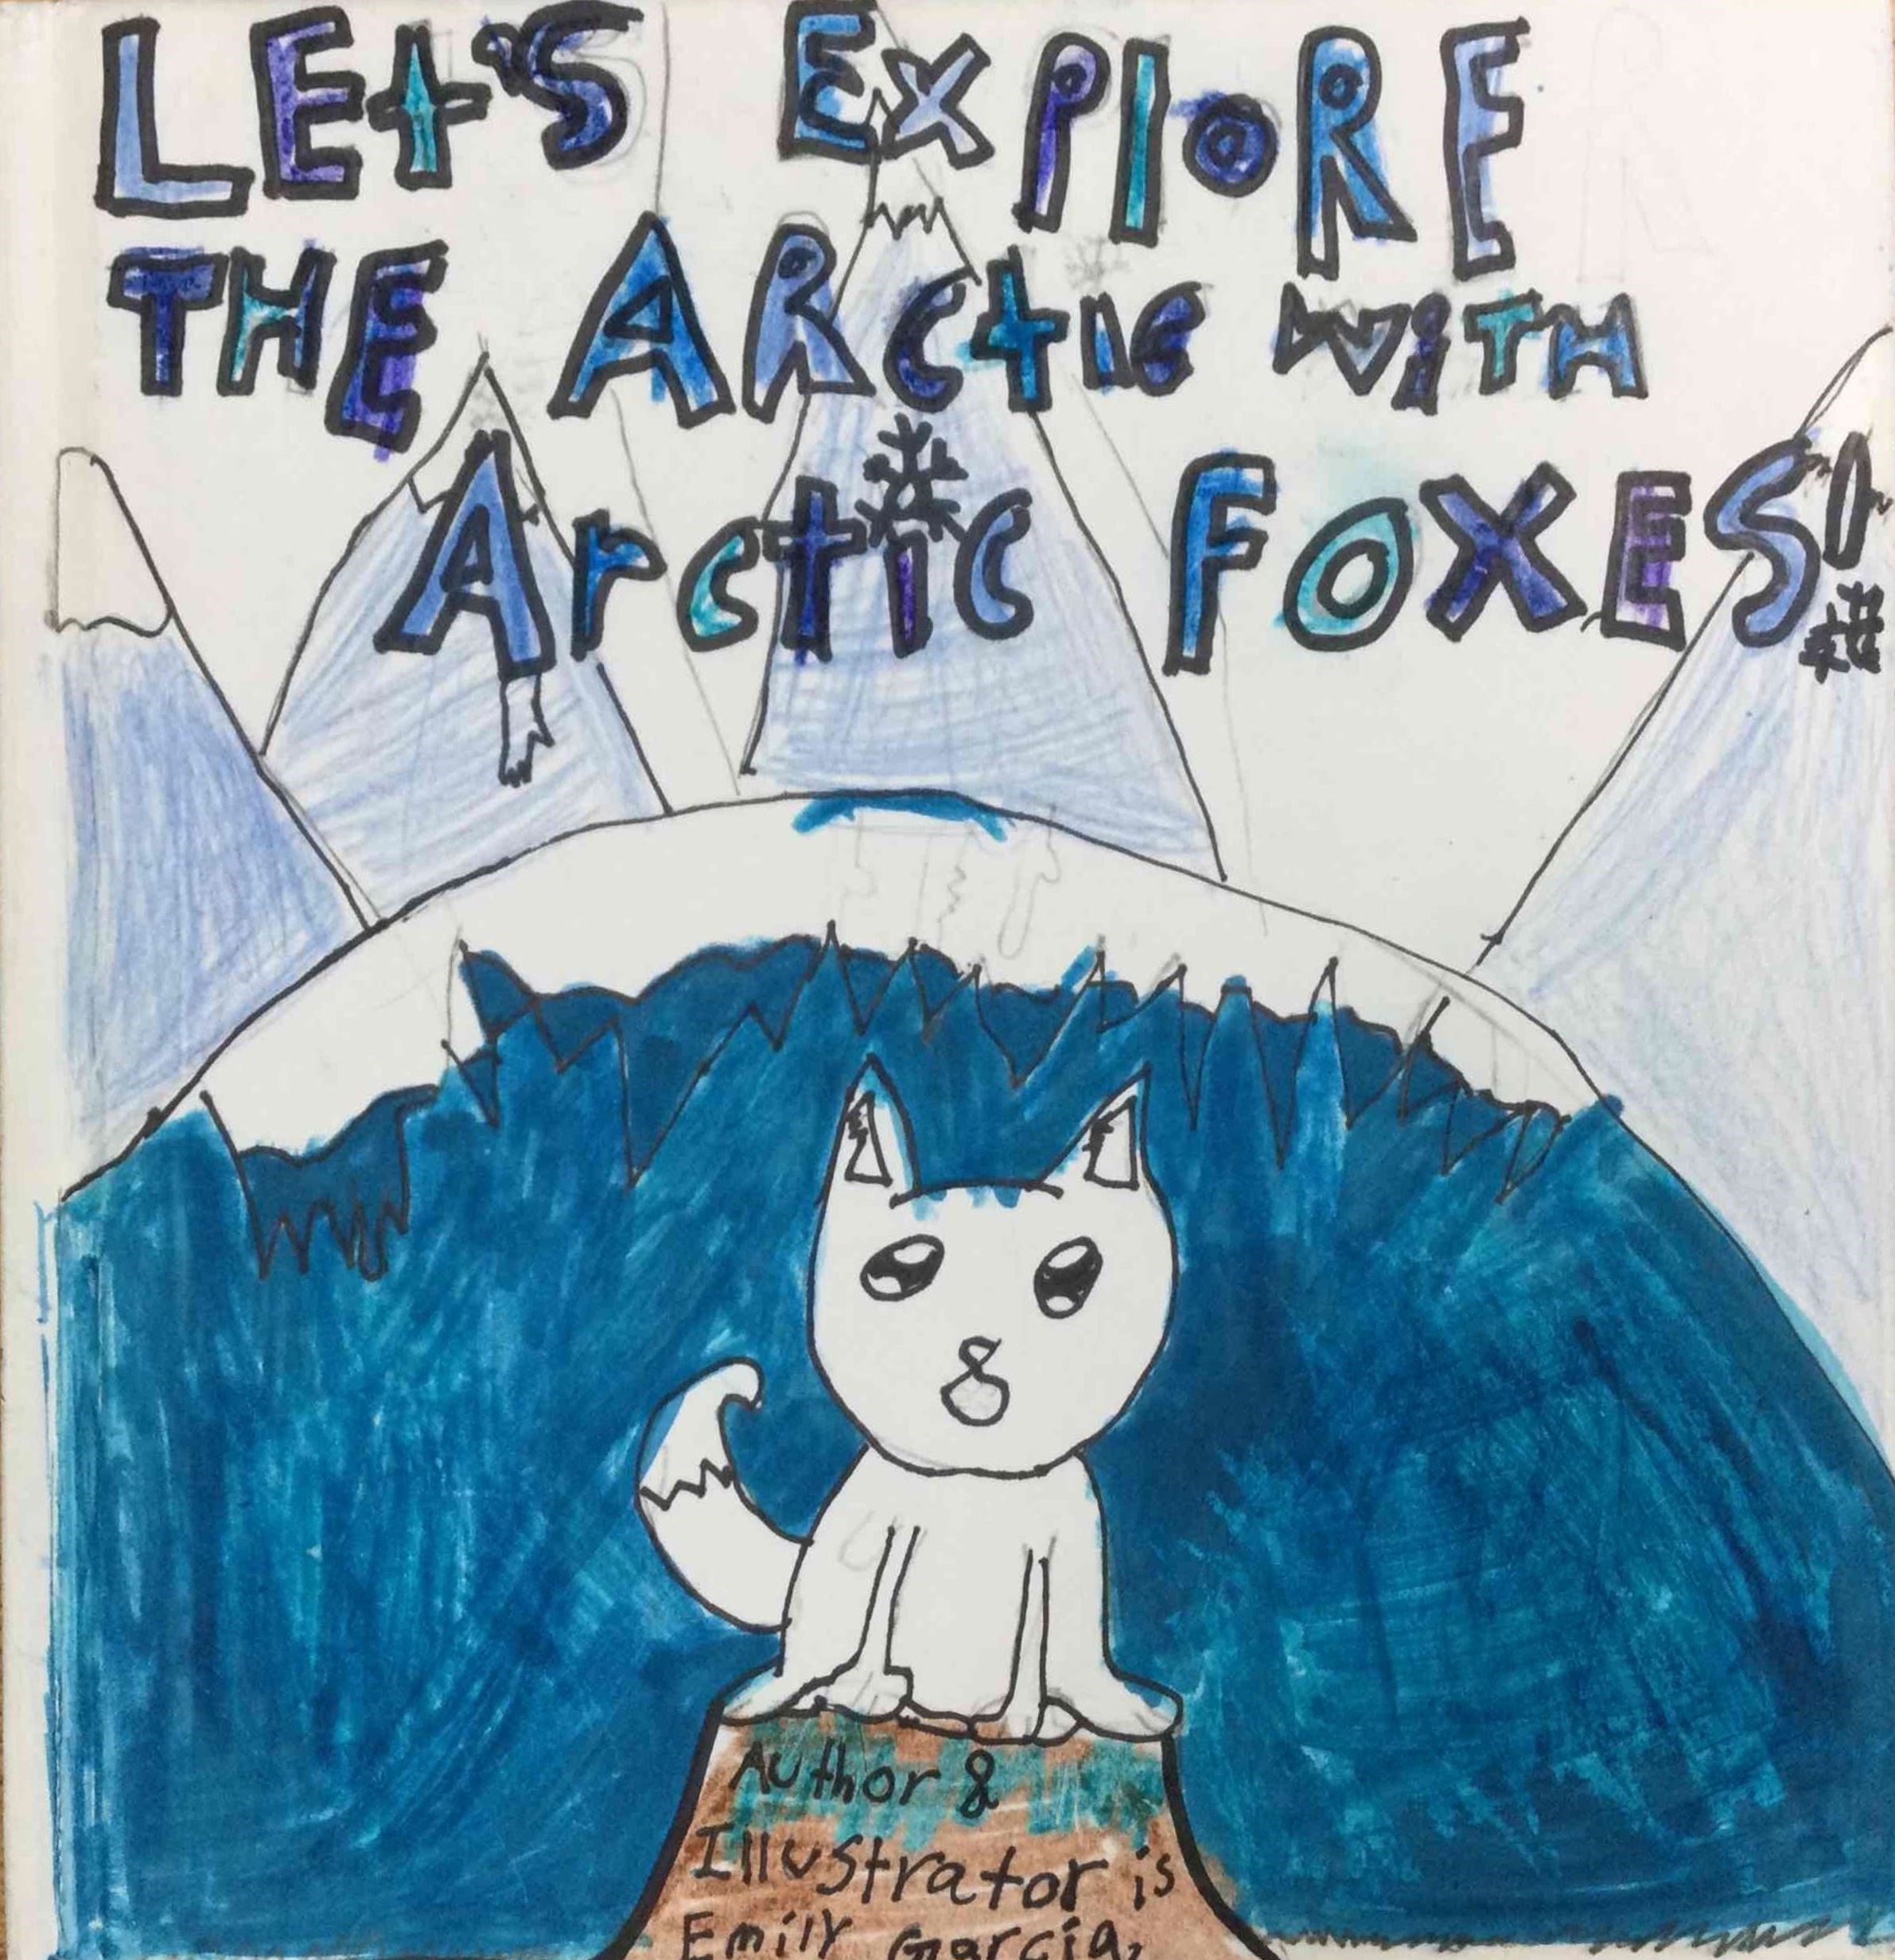 LEt'S EXPlORE
THE ARCtic WiTH
Arctic FOXES!
Author &
Illustrator is
Emily Garcia,